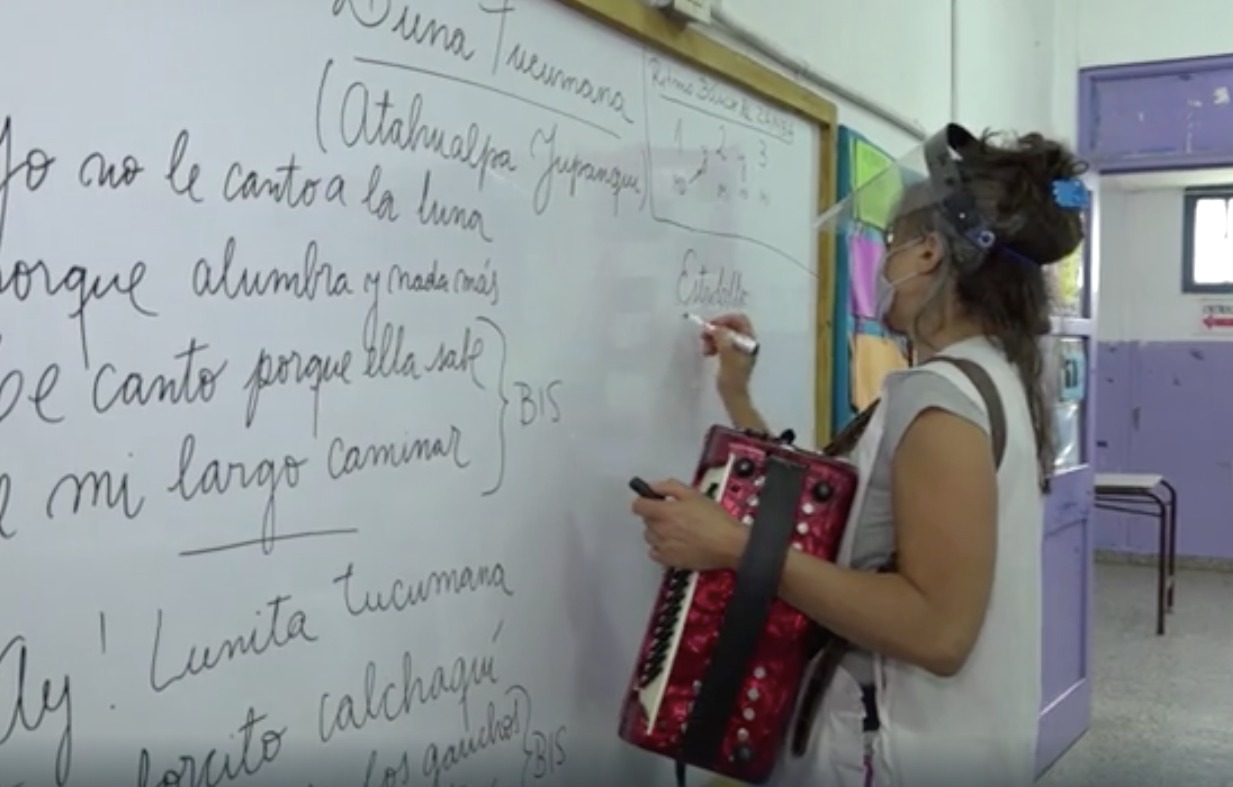 Luna Tucumana
(Atahualpa Yupanqui)
Yo no le canto a la luna
porque alumbra y nada más
Le canto porque ella sabe
mi largo caminar
BIS
Ay! Lunita tucumana
borcito calchaquí
los gauchos
BIS
Ritmo Base de ZAMBA
1 y 2 y 3
Estribillo